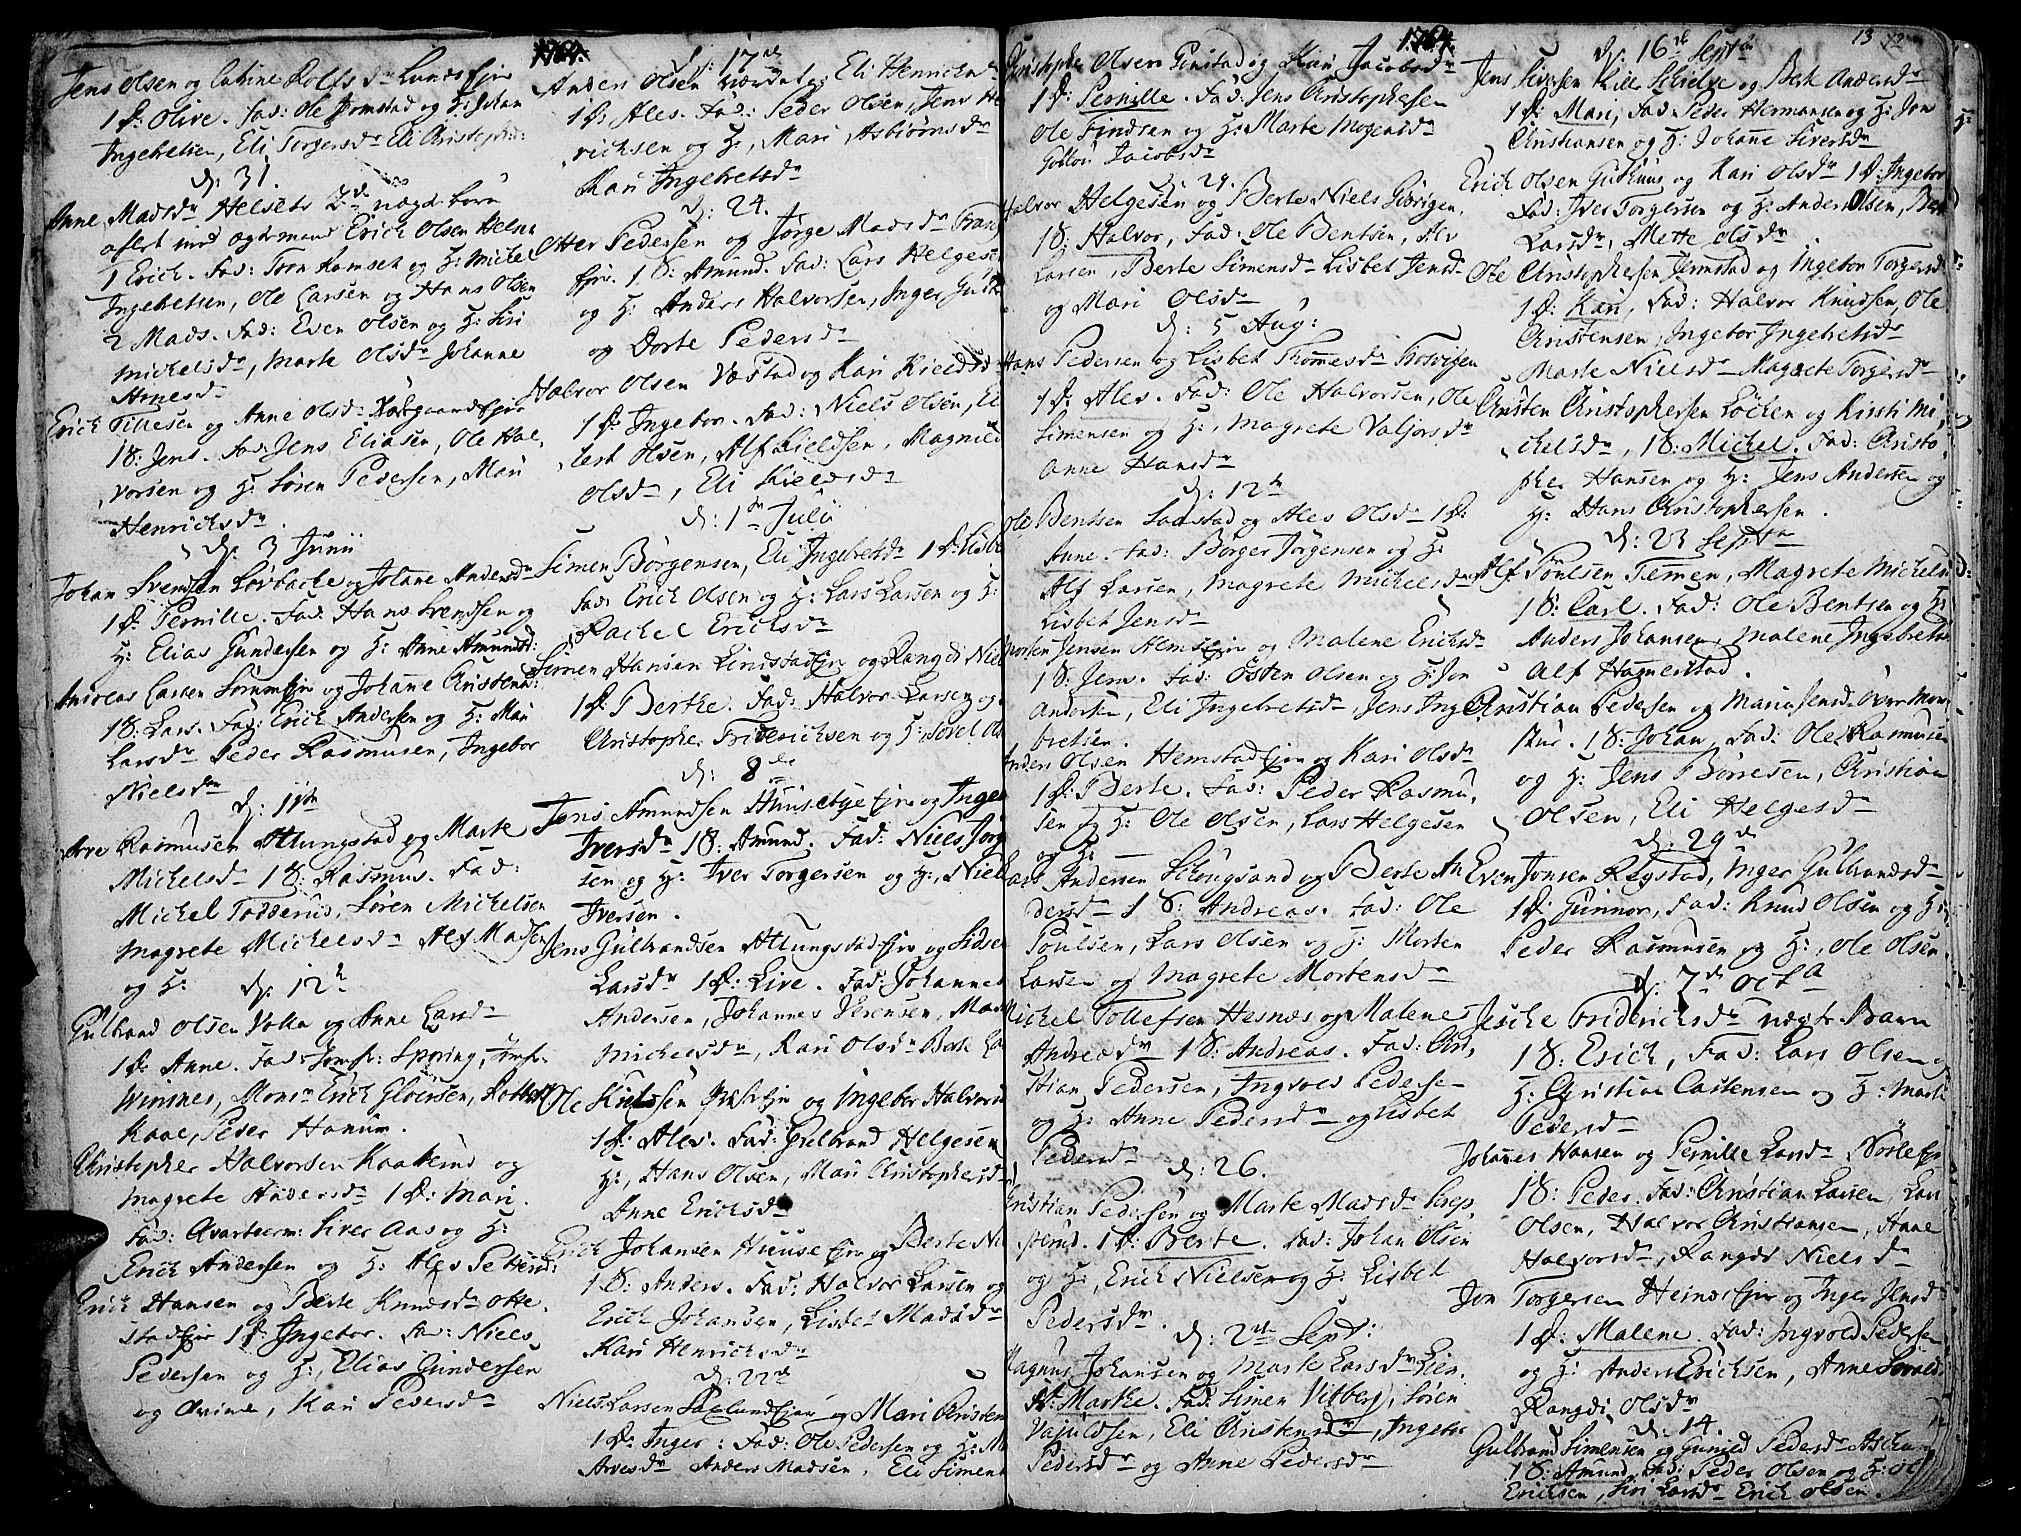 1764.
Jens Olsen og Cathrine Rolfsdr Lundsejer
1 D: Olive. Fad: Ole Jemstad og H: Johan
Ingebretsen, Eli Torgersdr Eli Christophrs:
d: 31.
Anne Madsdr Helsets 2de uægte børn
aflet med ægtemand Erich Olsen Helset
1 Erich. Fad: Tron Ramset og H: Michel
Ingebretsen, Ole Larsen og Hans Olsen
2 Mads. Fad: Even Olsen og H: Siri
Michelsdr, Marte Olsdr Johanne
Arnesdr
Erich Tillesen og Anne Olsdr
1 S: Jens. Fad: Jens Eliasen, Ole Hal,
vorsen og H: Søren Pedersen, Mari
Henrichsdr.
d: 3 Junii
Johan Svendsen Løvbacke og Johane Andersdr
1 D: Pernille. Fad: Hans Svendsen og
H: Elias Gundersen og H: Anne Amundsd:
Andreas Larsen og Johanne Christensd:
1 S: Lars. Fad: Erich Andersen og H: Mari
Larsdr Peder Rasmusen, Ingebor
Nielsdr
d: 11te
Arve Rasmusen Attungstad og Marte
Michelsdr 1 S: Rasmus. Fad:
Michel Todderud, Søren Michelsen
Magrete Michelsdr Alf Madsen
og H:
d: 12te
Gulbrand Olsen Volla og Anne Larsdr
1 D: Anne. Fad: Jomfr: Sporing, Jomfr.
Winsnes, Monsr Erich Gløersen,
Kaae, Peder Hanum.
Christopher Halvorsen Kaaterud og
Magrete Andersdr 1 D: Mari.
Fad: Qvarteerm: Siver Aas og H:
Erich Andersen og H: Ales Pettersd:
Erich Hansen og Berte Knudsdr Otte,
stadejer 1 D: Ingebor. Fad: Niels
Pedersen og H:, Elias Gundersen
og Qvinde, Kari Pedersdr
d: 17de
Anders Olsen og Eli Henrichs
1 D: Ales. Fad: Peder Olsen, Jens He
richsen og H:, Mari Asbiørnsdr
Kari Ingebretsdr
d: 24.
Otter Pedersen og Jørge Madsdr
1 S: Amund. Fad: Lars Helgesen
og H: Anders Halvorsen, Inger
og Dorte Pedersdr
Halvor Olsen Væstad og Kari Kieldsd
1 D: Ingebor. Fad: Niels Olsen, El
lert Olsen, Alf Kieldsen, Magnild
Olsdr, Eli Kieldsdr
d: 1ste Julii
Simen Børgensen, Eli Ingebretsdr 1 D: Lisbe
Fad: Erich Olsen og H: Lars Larsen og H:
Rachel Erichsdr
Simen Hansen Lindstadejer og Rangdi Niel
1 D: Berthe. Fad: Halvor Larsen og
Christopher Friderichsen og H: Sorel Ols
d: 8de
Jens Amundsen Huusebye ejer og Inge
Iversdr 1 S: Amund. Fad: Niels Jørg
sen og H: Iver Torgersen og H:, Niels
Iversen.
Jens Gulbrandsen Attungstadejer og Sidsel
Larsdr 1 D: Live. Fad: Johannes
Andersen, Johannes Sørensen, Mari
Michelsdr, Kari Olsdr Berte La
Ole Knudsen og Ingebor Halvorsd
1 D: Ales. Fad: Gulbrand Helgesen
H:, Hans Olsen, Mari Christophersdr
Anne Erichsdr
Erich Johansen Huuse ejer og Berte Ni
1 S: Anders. Fad: Halvor Larsen og
Erich Johansen, Lisbet Madsdr
Kari Henrichsdr
d: 22de
Niels Larsen og Mari Christen
1 D: Inger: Fad: Ole Pedersen og H: M
Arvesdr Anders Madsen, Eli Simens
1764.
Christopher Olsen Finstad og Kari Jacobsdr
1 D: Pernille. Fad: Jens Christophersen
Ole Findsen og H: Marte Mogensdr
Jacobsdr
d: 29.
Halvor Helgesen og Berte Niels
1 S: Halvor, Fad: Ole Bentsen, Alv
Larsen, Berte Simensdr Lisbet Jensdr
og Mari Olsdr
d: 5 Aug:
Hans Pedersen og Lisbet Thomesdr Trosvigen
1 D: Ales. Fad: Ole Halvorsen, Ole
Simensen og H:, Magrete Valjorsdr
Anne Hansdr
d: 12te
Ole Bentsen og Ales Olsdr 1 D:
Anne. Fad: Børger Jørgensen og H:
Alf Larsen, Magrete Michelsdr
Lisbet Jensdr
Morten Jensen Almsejer og Malene Erichsdr
1 S: Jens. Fad: Østen Olsen og H: Jon
Andersen, Eli Ingebretsdr, Jens Inge
bretsen.
Anders Olsen Hemstadejer og Kari Olsdr
1 D: Berte. Fad: Peder Rasmu,
sen og H: Ole Olsen, Lars Helgesen
og H: —
Lars Andersen Schougsand og Berte An
dersdr 1 S: Andreas. Fad: Ole
Poulsen, Lars Olsen og H: Morten
Larsen og Magrete Mortensdr
Michel Tollefsen Hesnæs og Malene
Andreadr 1 S: Andreas. Fad: Chri,
stian Pedersen, Ingvold Pederse
og H: Anne Pedersdr og Lisbet
Pedersdr
d: 26.
Christian Pedersen og Marte Madsdr
1 D: Berte. Fad: Johan Olsen
og H:, Erich Nielsen og H: Lisbet
Pedersdr.
d: 2den Sept:
Magnus Johansen og Marte Larsdr Lien.
D: Marthe. Fad: Simen Vitberg, Søren
Eli Christensdr, Ingebor
Pedersdr og Anne Pedersdr
13
d: 16de Septbr
Jens Siversen Lille Schielse og Berte Andersdr
1 D: Mari, Fad: Peder Hermansen og H: Jon
Christiansen og H: Johanne Siversdr
Erich Olsen Gudhuus og Kari Olsdr 1 D: Ingebor
Fad: Iver Torgersen og H: Anders Olsen, Ber
Larsdr, Mette Olsdr
Ole Christophersen Jemstad og Ingebor Torgersd
1 D: Kari, Fad: Halvor Knudsen, Ole
Christensen, Ingebor Ingebretsdr
Marte Nielsdr Magrete Torgersdr
Christen Christophersen Løcken og Kirsti Mi,
chelsdr, 1 S: Michel. Fad: Christo
pher Hansen og H: Jens Andersen og
H: Hans Christophersen.
d: 23 Septbr
Alf Poulsen Temen, Magrete Michelsd
1 S: Carl. Fad: Ole Bentsen og H:
Anders Johansen, Malene Ingebretsd
Alf Hammerstad.
Christian Pedersen og Maria Jensd.
1 S: Johan, Fad: Ole Rasmusen
og H: Jens Børresen, Christian
Olsen, Eli Helgesdr
d: 29de
Even Jonsen Røgstad, Inger Gulbrandsdr
1 D: Gunnor, Fad: Knud Olsen og H:
Peder Rasmusen og H:, Ole Olsen
d: 7de Octbr
Jesche Friderichsdr uægte Barn
1 S: Erich, Fad: Lars Olsen og
H: Christian Castensen og H: Marte
Pedersdr
Johannes Hansen og Pernille Larsdr
1 S: Peder. Fad: Christian Larsen, Lars
Olsen, Halvor Christiansen, Anne
Halvorsdr, Rangdi Nielsdr
Jon Torgersen og Inger Jensd
1 D: Malene. Fad: Ingvold Pedersen
og H: Anders Erichsen, Anne
Rangdi Olsdr
d: 14.
Gulbrand Simensen og Gunild Pedersdr
1 S: Amund. Fad: Peder Olsen og H: Ol
Erichsen, Siri Larsdr Erich Olsen.